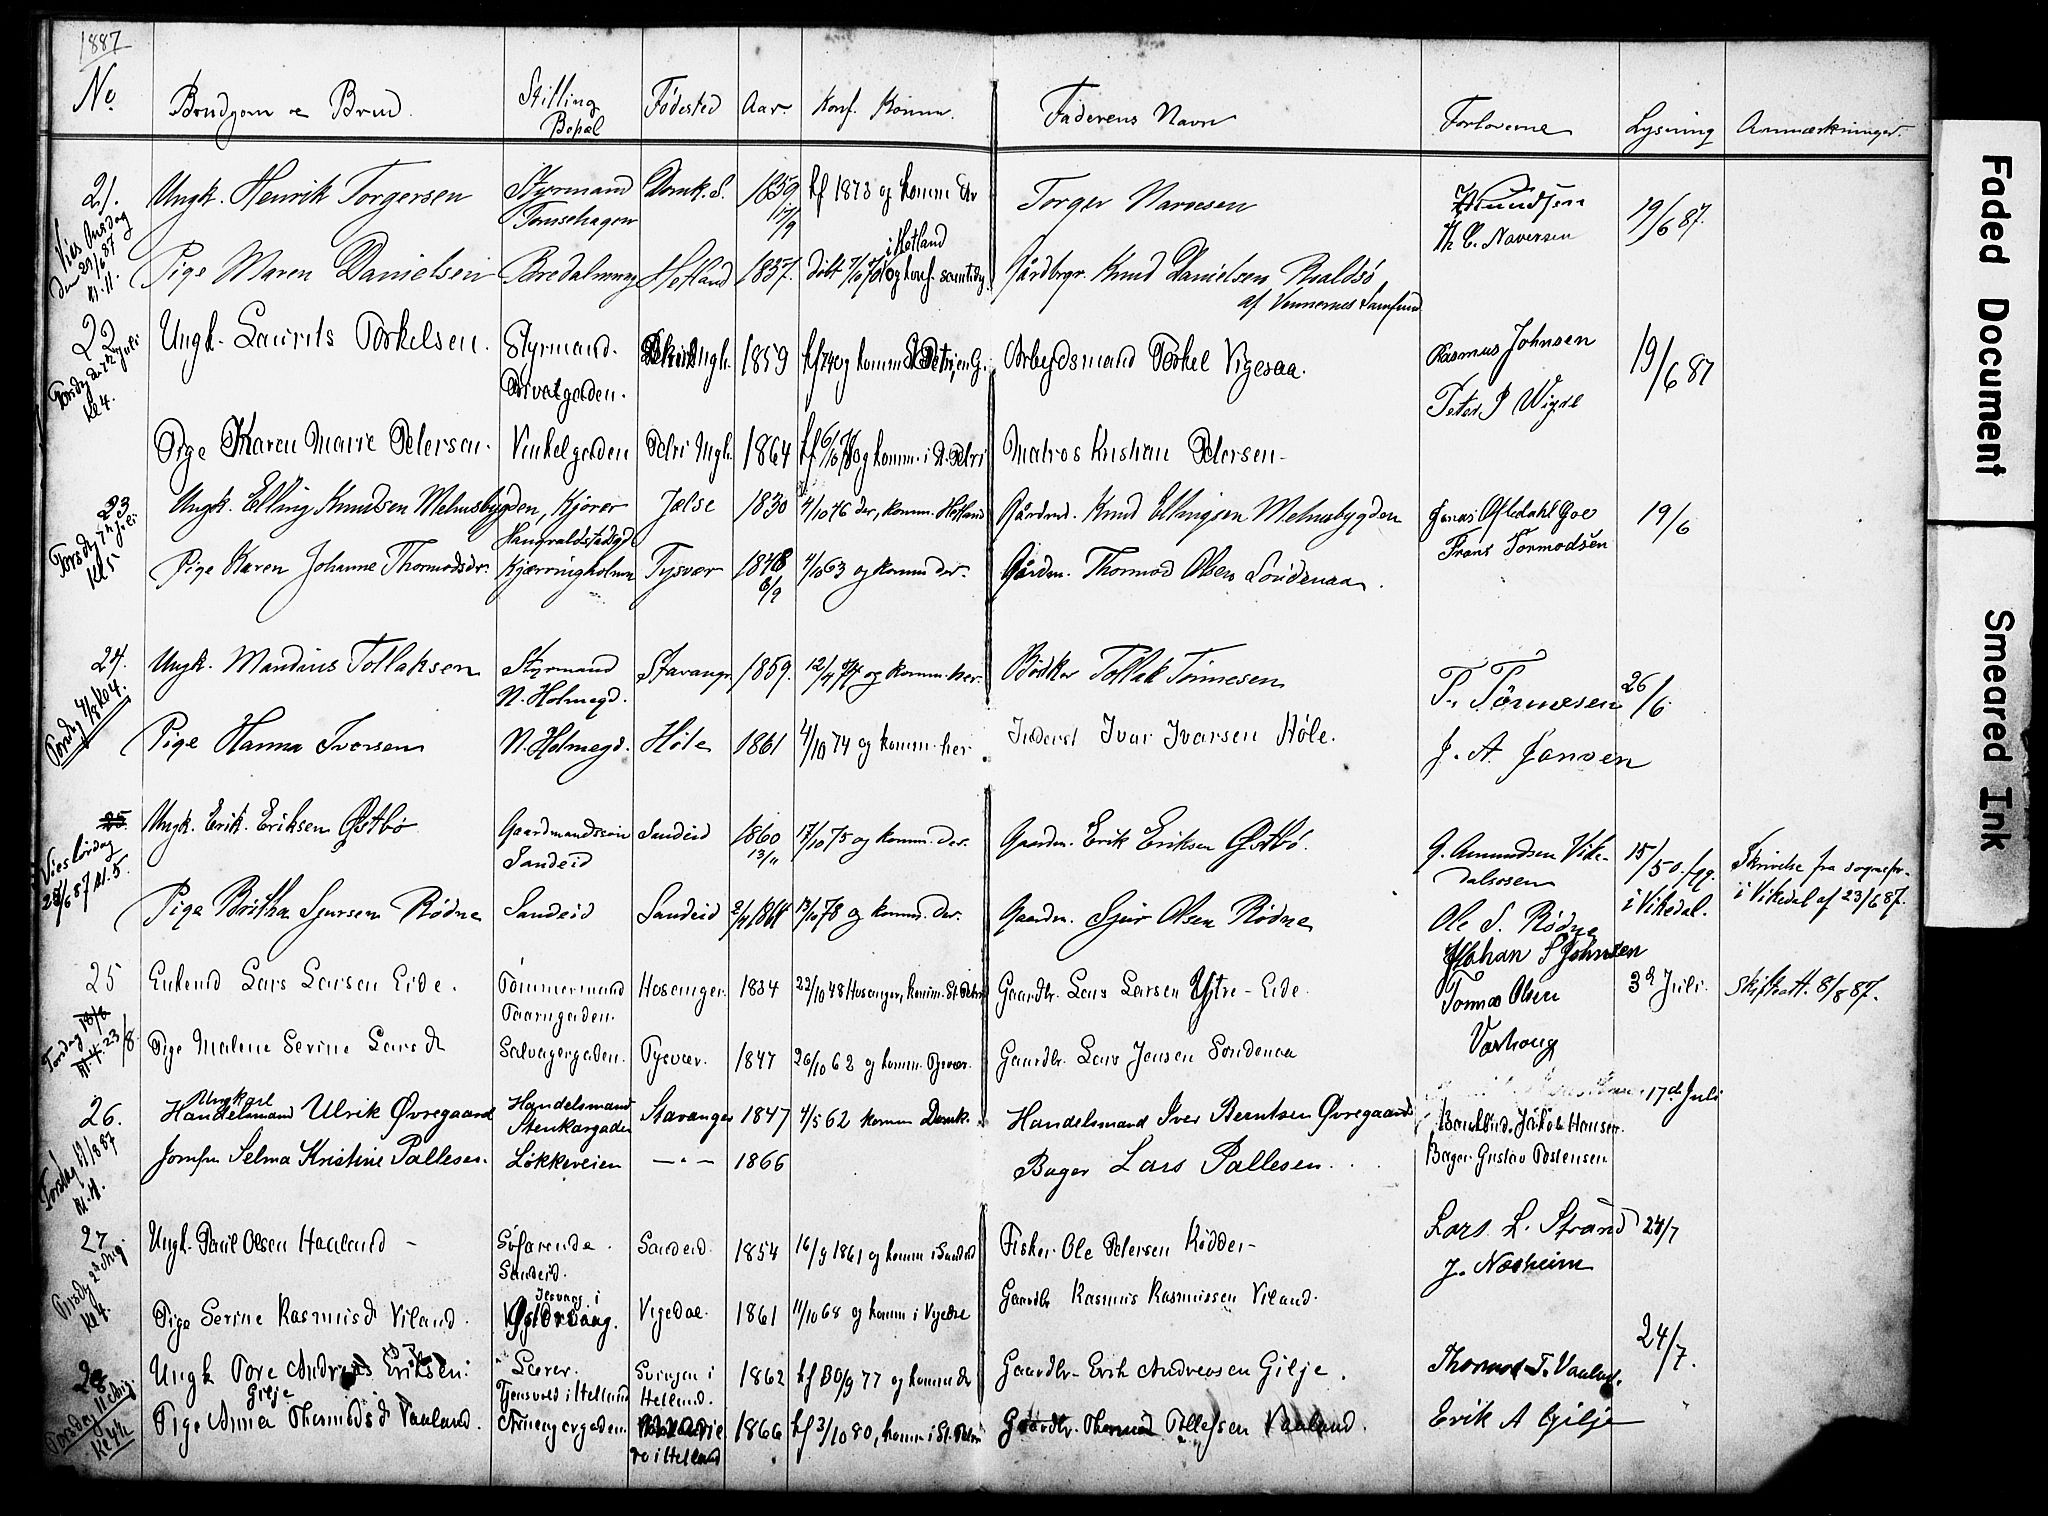 1887
No. Brudgom & Brud. Stilling Bopæl Fødested Aar. Konf. Komm. Faderens Navn Forloverne Lysning Anmærkninger.
21. Ungk. Henrik Torgersen Styrmand Domk. S. 1859 17/9 kf 1873 og komm Torger Narvesen 19/6 87.
Tomsehagen Th C. Naversen
Vies Onsdag den 29/6 87 Kl. 11.
Pige Maren Danielsen Bredalmung Hetland 1857. døbt i Hetland og konf. samtidig. Gårdbrgr. Knud Danielsen Roaldsø
af Vennernes Samfund
22 Ungk. Laurits Torkelsen. Styrmand. 1859 kf 74 og komm Arbeydsmand Torkel Vigesaa. Rasmus Johnsen 19/6 87
Torsdag den 7de Juli Kl 4. Privatgaden. Peter P Wigre
Pige Karen Marie Petersen. Vinkelgaden Petri Mgh. 1864 og komm. i St. Petri Matros Kristian Petersen
23 Ungk. Elling Knudsen Melhusbygden, Kjører Jelse 1830 4/10 46 der, komm. Hetland Gårdmd. Knud Ellingsen Melhusbygden Jonas Ofstedahl Goe 19/6
Torsdag 7de Juli Kl 5 Haugvaldstadsgd. Frans Tormodsen
Pige Karen Johanne Thormodsdr. Kjærringholmen Tysvær 1848 8/9 4/10 63 og komm der. Gårdm. Thormod Olsen Søndenaa.
24. Ungk. Mandius Tollaksen Styrmand Stavanger 1859. og komm. her. Bødker Tollak Tönnesen T. Tönnesen 26/6
N. Holmegd.
Torsdag 4/8 Kl 4.
Pige Hanna Iversen N. Holmegd. Høle 1861 4/10 74 og komm. her Inderst Ivar Ivarsen Høle. J. A. Jansen
25. Ungk. Erik Eriksen Østbø Gaardmandssøn Sandeid 1860 13/11 17/10 75 og komm. der. Gaardm. Erik Eriksen Østbø. G. Amundsen Vikedalsosen 15/5 o. flg. i Vikedal. Skrivelse fra sognepr. i Vikedal af 23/6 87.
Sandeid
Vies Lørdag 25/6 87 Kl. 5.
Pige Britha Sjursen Rødne Sandeid Sandeid 13/10 78 og komm. der. Gaardm. Sjur Olsen Rødne Ole S. Rødne
Johan S Johnsen
25 Enkemd Lars Larsen Eide. Tømmermand Hosanger. 1834 22/10 48 Hosanger, komm. St. Petri Gaardbr. Lars Larsen Ystre-Eide. Tormod Olsen 3de Juli. Skifteatt. 8/8 87.
Taarngaden. Varhoug
Torsdag 18/8 Kl. 4. 23/8
Pige Malene Serine Larsd Salvagergaden. Tysvær. 1847 26/10 62 og komm. Tysvær. Gaardbr. Lars Jensen Søndenaa
26. Ungkarl Handelsmand Ulrik Øvregaard Handelsmand Stavanger 1847 4/5 62 komm Domk. Handelsmand Iver Berntsen Øvregaard 17de Juli
Stenkargaden Jakob Hansen.
Torsdag 11/8 87 Kl. 11.
Jomfru Selma Kristine Pallesen. Løkkeveien — " — 1866 Bager Lars Pallesen. Bager Gustav Tostensen
27 Ungk. Paul Olsen Haaland Søfarende. Sandeid. 1854 16/9 1861 og komm i Sandeid Fisker Ole Petersen Rødder Lars L. Strand 24/7
Sandeid. J. Næsheim
Torsdag 2de Aug. Kl 4.
Pige Serine Rasmusd Viland. Vigedal. 1861 11/10 68 og komm i Vigedal Gaardbr Rasmus Rasmussen Viland.
28 Ungk Tore Andreas Eriksen Gilje Lærer. Svinjen i Hetland. 1862 kf 30/9 77 og komm der Gaardbr. Erik Andreasen Gilje. Thormod T. Vaaland. 24/7.
Tjensvold i Hetland
Torsdag 11 Aug. Kl 4½
Pige Anna Thormodsd Vaaland. 1866 kf 3/10 80, komm i St. Petri Gaardbr. Thormod Tollefsen Vaaland. Erik A Gilje
Faded Document
Smeared Ink